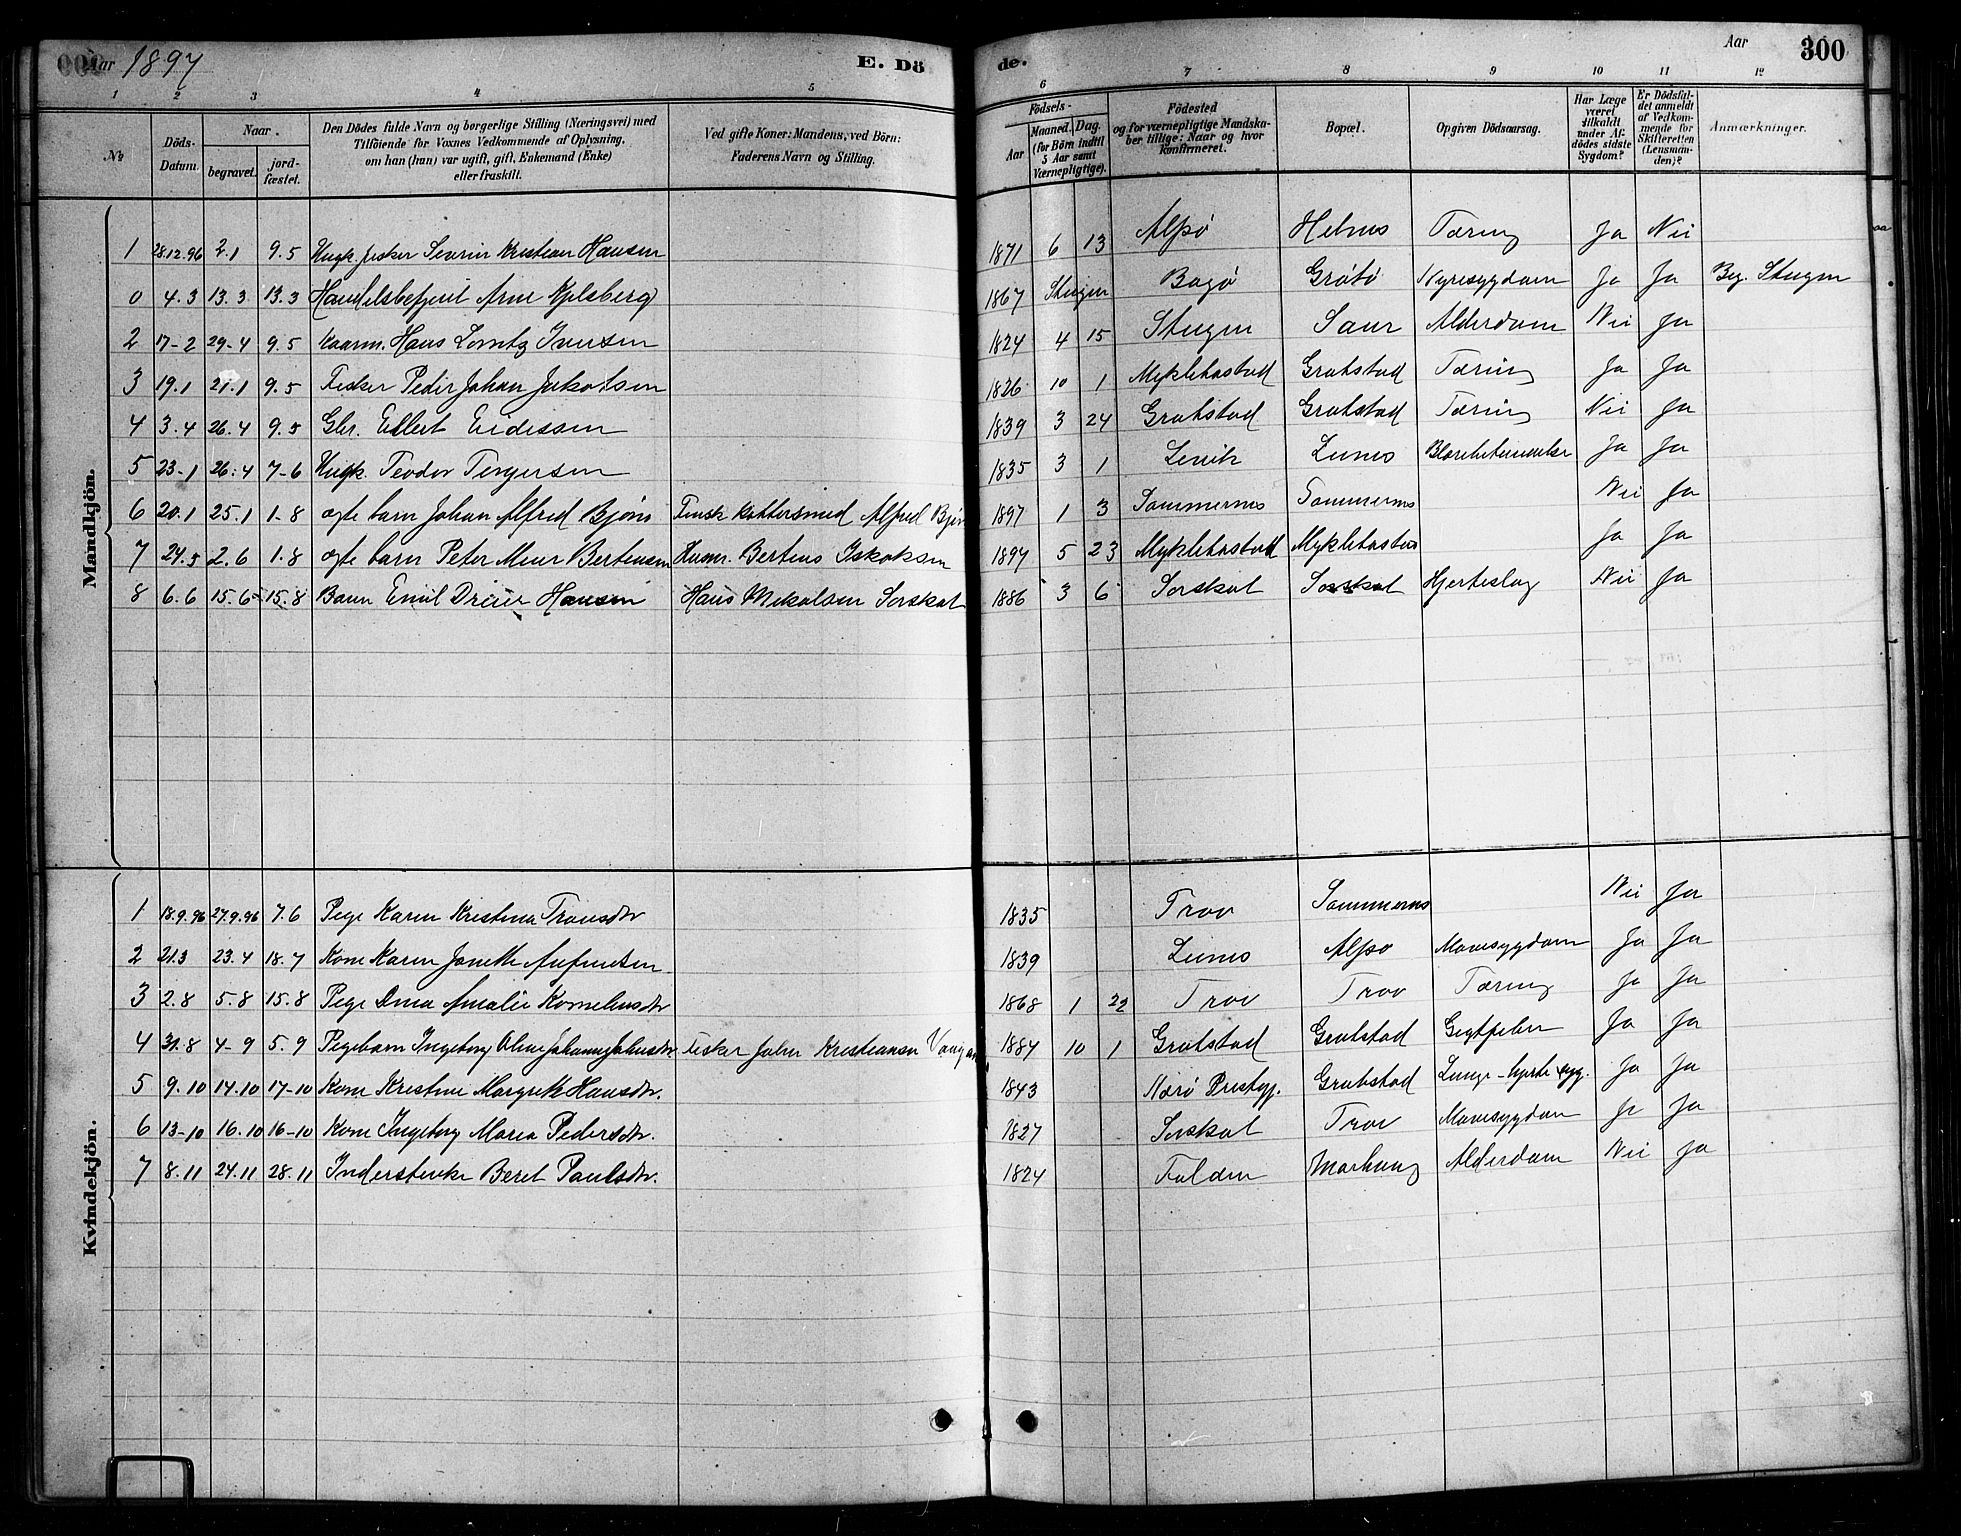 Aar 1897 E. Dö
de. Aar 300
1 2 3 4 5 6 7 8 9 10 11 12
No
Döds-Datum.
Naar.
begravet.
jordfæstet.
Den Dödes fulde Navn og borgerlige Stilling (Næringsvei) med
Tilföiende for Voxnes Vedkommende af Oplysning,
om han (hun) var ugift, gift, Enkemand (Enke)
eller fraskilt.
Ved gifte Koner: Mandens, ved Börn:
Faderens Navn og Stilling.
Födsels-
Aar
Maaned. Dag.
(for Börn indtil
5 Aar samt
Værnepligtige).
Födested
og for værnepligtige Mandskaber
tillige: Naar og hvor
konfirmeret.
Bopæl.
Opgiven Dödsaarsag.
Har Læge
været
tilkaldt
under Afdödes
sidste
Sygdom?
Er Dödsfaldet
anmeldt
af Vedkommende
for
Skifteretten
(Lensmanden)?
Anmærkninger.
Mandkjön.
1 28.12.96 2.1 9.5 Ungk. fisker Severin Kristian Hansen 1871 6 13 Alsø Helnes Tæring Ja Nei
0 4.3 13.3 13.3 Handelsbetjent Arne Kjelsberg 1867 Stegen Bogø Grøtø Nyresygdom Ja Ja Beg. Stegen
2 17-2 29-4 9.5 Kaarm. Hans Lorntz Iversen 1824 4 15 Stegen Saur Alderdom Nei Ja
3 19.1 21.1 9.5 Fisker Peder Johan Jakobsen 1826 10 1 Myklebostad Grøtstad Tæring Ja Ja
4 3.4 26.4 9.5 Gbr. Ellert Eidissen 1839 3 24 Grøtstad Grøtstad Tæring Nei Ja
5 23-1 26.4 7-6 Ungk. Teodor Tergersen 1835 3 1 Leirik Leines Blærebetændelse Ja Ja
6 20.1 25.1 1-8 ægte barn Johan Alfred Bjönö Finsk kobbersmed Alfred Bjönö 1897 1 3 Sommernes Sommernes Nei Ja
7 24.5 2.6 1.8 ægte barn Peter Meier Bertensen Husm. Berteus Iskaksen 1897 5 23 Myklebostad Myklebostad Ja Ja
8 6.6 15.6 15.8 Barn Emil Dreier Hansen Hans Mikalsen Sørskot 1886 3 6 Sørskot Sørskot Hjerteslag Nei Ja
Kvindekjön.
1 18.9.96 27.9.96 7.6 Pige Karen Kristina Tronsdtr 1835 Trov Sommernes Nei Ja
2 21.3 23.4 18.7 Kone Karen Janette Anfinsen 1839 Leines Alsø Mavesygdom Ja Ja
3 2.8 5.8 15.8 Pige Dina Amalie Korneliusdtr 1868 1 22 Trov Trov Tæring Ja Ja
4 31.8 4-9 5.9 Pigebarn Ingeborg Oline Johanna Johnsdtr Fisker John Kristiansen 1884 10 1 Grøtstad Grøtstad Gigtfeber Ja Ja
5 9.10 14.10 17-10 Kone Kristine Margrete Hansdtr. 1843 Nærø Prestegj. Grøtstad Lunge-hjerte syg. Ja Ja
6 13-10 16.10 16-10 Kone Ingeborg Maria Pedersdtr. 1827 Sørskot Trov Mavesygdom Ja Ja
7 8.11 24.11 28.11 Inderstenke Beret Paulsdtr. 1824 Folden Markung Alderdom Nei Ja